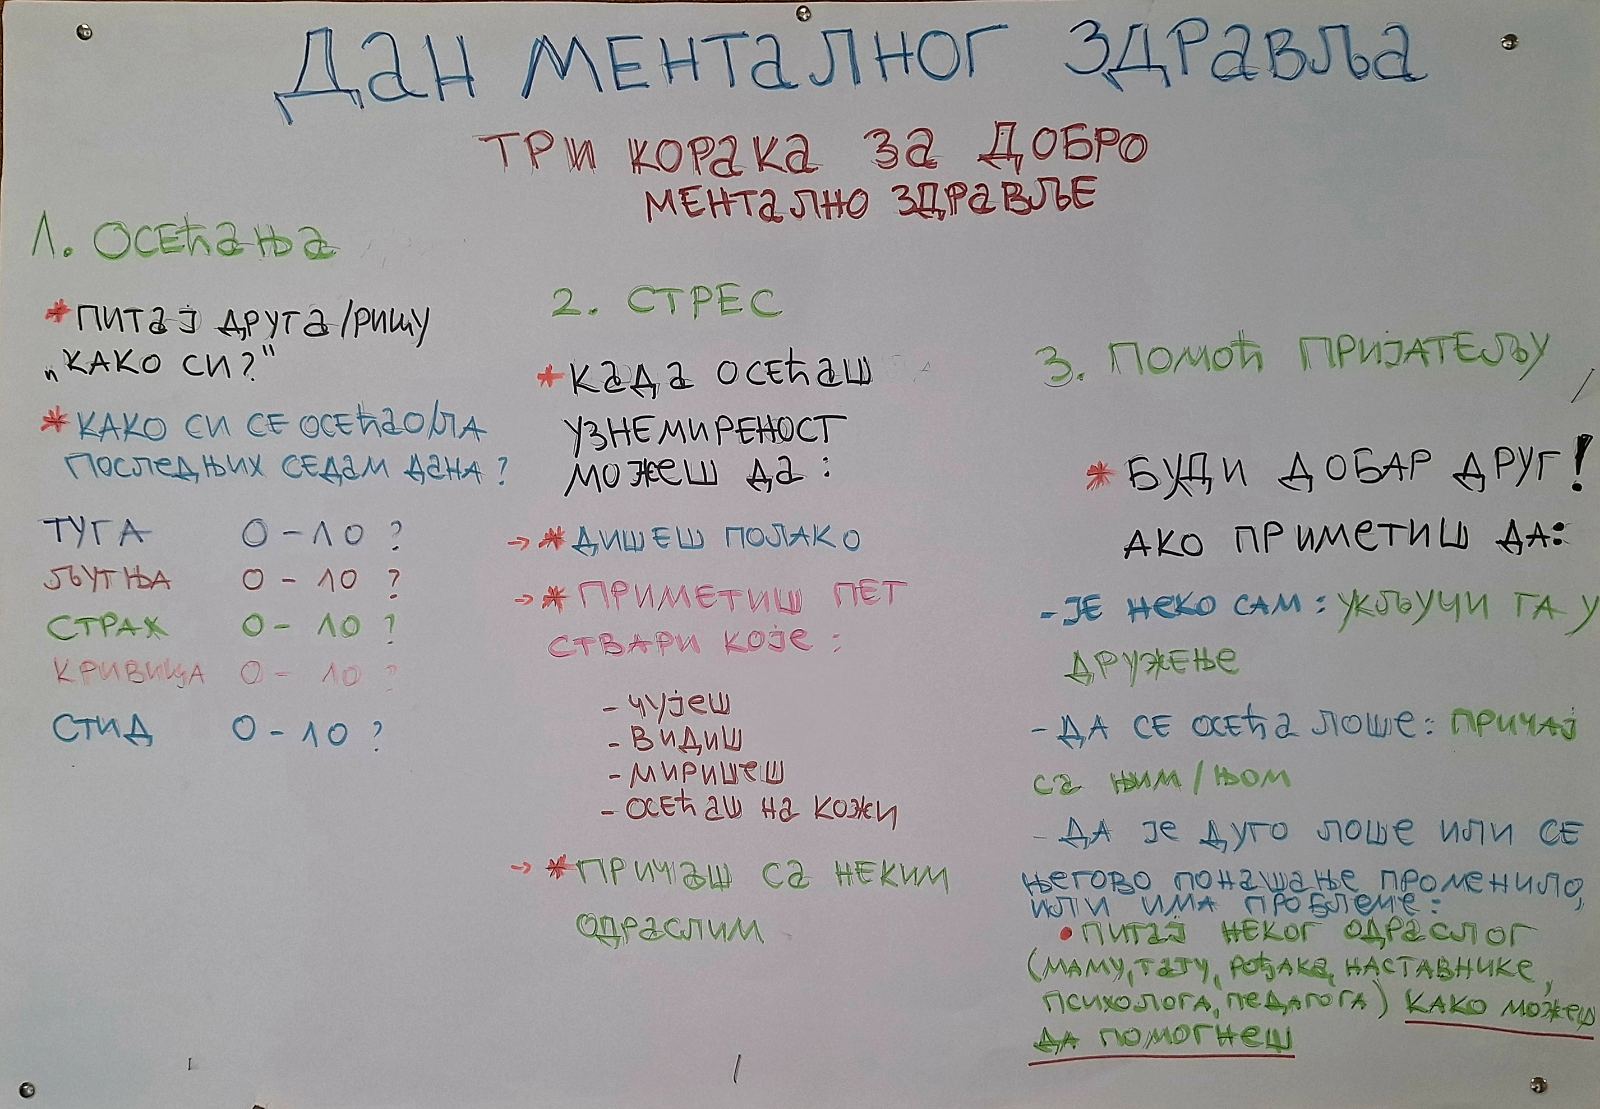 ДАН МЕНТАЛНОГ ЗДРАВЉА
ТРИ КОРАКА ЗА ДОБРО
МЕНТАЛНО ЗДРАВЉЕ
1. ОСЕЋАЊА
* ПИТАЈ ДРУГА/РИЦУ
„КАКО СИ?"
* КАКО СИ СЕ ОСЕЋАО/ЛА
ПОСЛЕДЊИХ СЕДАМ ДАНА?
ТУГА 0-10 ?
ЉУТЊА 0-10 ?
СТРАХ 0-10 ?
КРИВИЦА 0-10 ?
СТИД 0-10 ?
2. СТРЕС
* КАДА ОСЕЋАШ
УЗНЕМИРЕНОСТ
МОЖЕШ ДА:
→ * ДИШЕШ ПОЛАКО
→ * ПРИМЕТИШ ПЕТ
СТВАРИ КОЈЕ:
- ЧУЈЕШ
- ВИДИШ
- МИРИШЕШ
- ОСЕЋАШ НА КОЖИ
→ * ПРИЧАШ СА НЕКИМ
ОДРАСЛИМ
3. ПОМОЋ ПРИЈАТЕЉУ
* БУДИ ДОБАР ДРУГ!
АКО ПРИМЕТИШ ДА:
- ЈЕ НЕКО САМ: УКЉУЧИ ГА У
ДРУЖЕЊЕ
- ДА СЕ ОСЕЋА ЛОШЕ: ПРИЧАЈ
СА ЊИМ/ЊОМ
- ДА ЈЕ ДУГО ЛОШЕ ИЛИ СЕ
ЊЕГОВО ПОНАШАЊЕ ПРОМЕНИЛО,
ИЛИ ИМА ПРОБЛЕМЕ:
• ПИТАЈ НЕКОГ ОДРАСЛОГ
(МАМУ, ТАТУ, РОЂАКА, НАСТАВНИКЕ,
ПСИХОЛОГА, ПЕДАГОГА) КАКО МОЖЕШ
ДА ПОМОГНЕШ